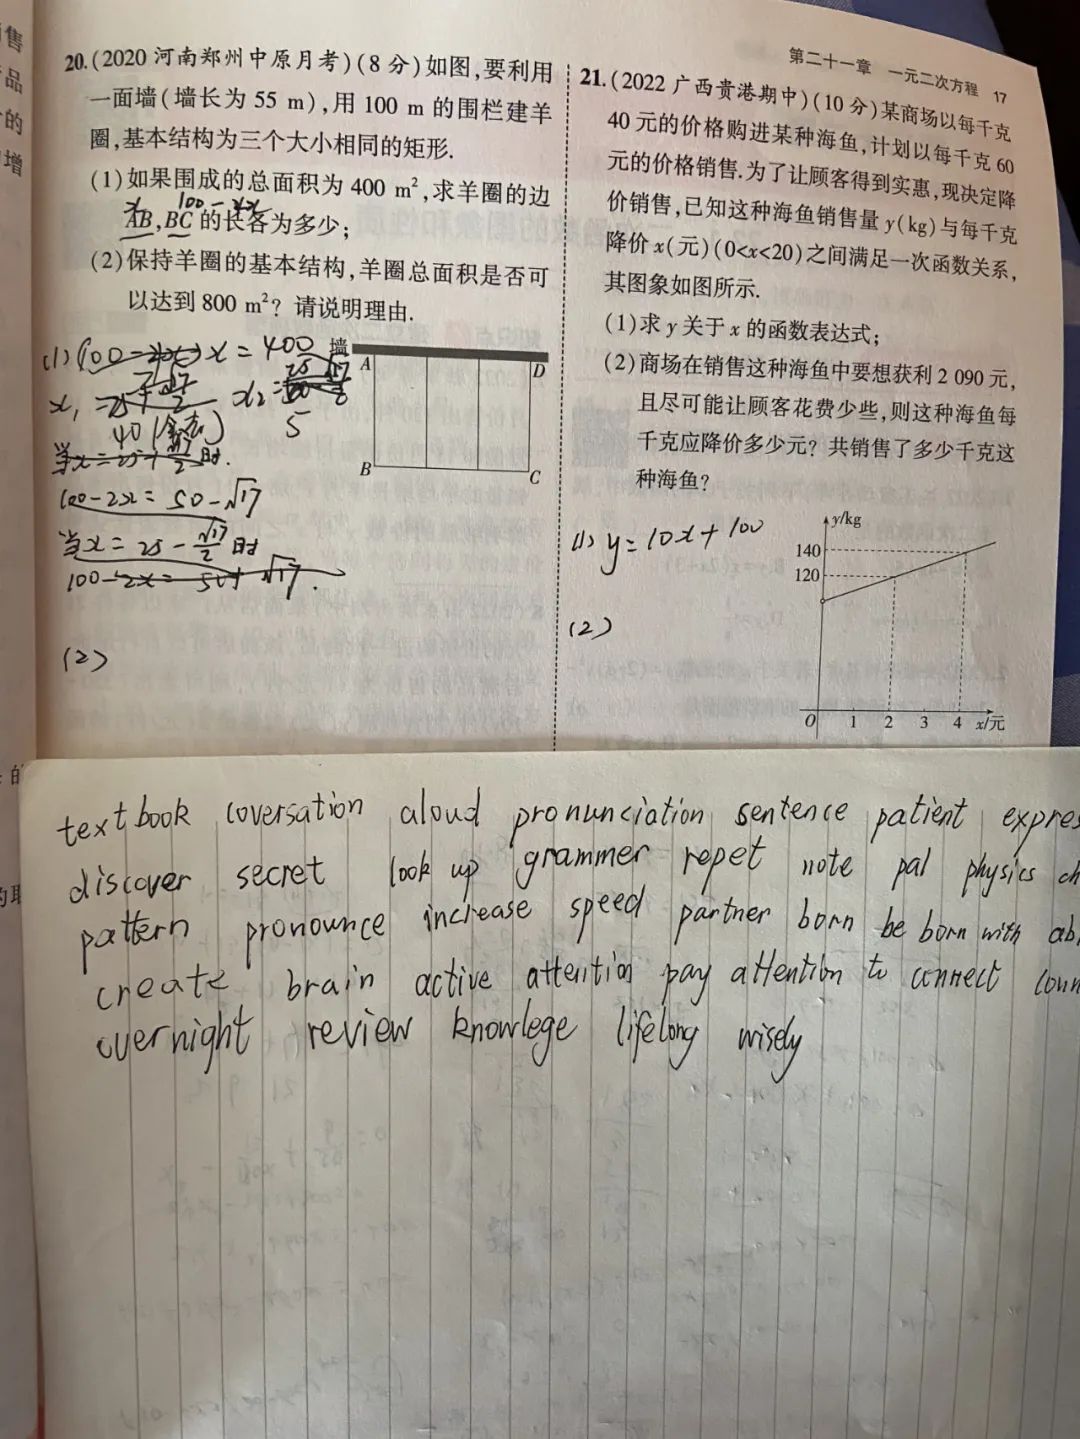 售
品
的
增
20.(2020河南郑州中原月考)(8分)如图,要利用
一面墙(墙长为55 m),用100 m的围栏建羊
圈,基本结构为三个大小相同的矩形.
(1)如果围成的总面积为400 m²,求羊圈的边
x 100-4x
AB,BC的长各为多少;
(2)保持羊圈的基本结构,羊圈总面积是否可
以达到800 m²?请说明理由.
(1) x = 400
40
5
100-2x = 50-√17
当x = 25 - √17/2 时
100-2x = 50+√17.
(2)
墙
A
D
B
C
第二十一章 一元二次方程 17
21.(2022广西贵港期中)(10分)某商场以每千克
40元的价格购进某种海鱼,计划以每千克60
元的价格销售.为了让顾客得到实惠,现决定降
价销售,已知这种海鱼销售量y(kg)与每千克
降价x(元)(0<x<20)之间满足一次函数关系,
其图象如图所示.
(1)求y关于x的函数表达式;
(2)商场在销售这种海鱼中要想获利2 090元,
且尽可能让顾客花费少些,则这种海鱼每
千克应降价多少元?共销售了多少千克这
种海鱼?
(1) y=10x+100
(2)
y/kg
140
120
O 1 2 3 4 x/元
textbook coversation aloud pronunciation sentence patient expres
discover secret look up grammer repet note pal physics ch
pattern pronounce increase speed partner born be born with abi
create brain active attention pay attention to connect
overnight review knowlege lifelong wisely